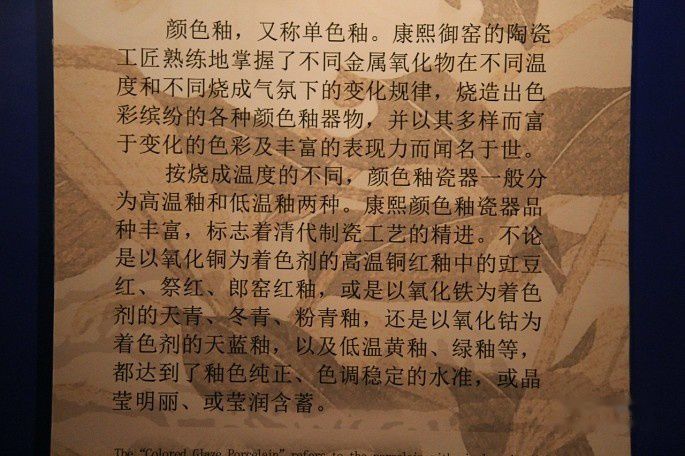 颜色釉，又称单色釉。康熙御窑的陶瓷
工匠熟练地掌握了不同金属氧化物在不同温
度和不同烧成气氛下的变化规律，烧造出色
彩缤纷的各种颜色釉器物，并以其多样而富
于变化的色彩及丰富的表现力而闻名于世。
按烧成温度的不同，颜色釉瓷器一般分
为高温釉和低温釉两种。康熙颜色釉瓷器品
种丰富，标志着清代制瓷工艺的精进。不论
是以氧化铜为着色剂的高温铜红釉中的豇豆
红、祭红、郎窑红釉，或是以氧化铁为着色
剂的天青、冬青、粉青釉，还是以氧化钴为
着色剂的天蓝釉，以及低温黄釉、绿釉等，
都达到了釉色纯正、色调稳定的水准，或晶
莹明丽、或莹润含蓄。
The "Colored Glaze Porcelain" refers to the porcelain with